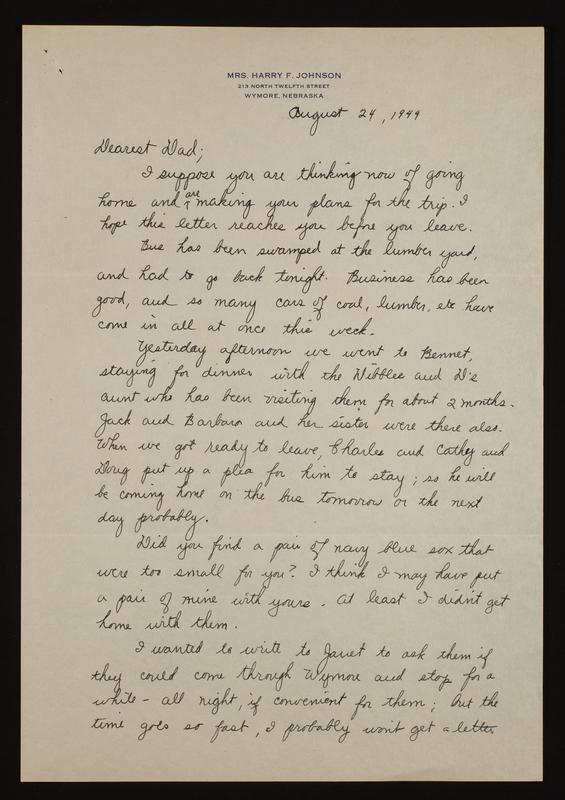 MRS. HARRY F. JOHNSON
213 NORTH TWELFTH STREET
WYMORE, NEBRASKA
August 24, 1949
Dearest Dad;
I suppose you are thinking now of going
home and are making your plans for the trip. I
hope this letter reaches you before you leave.
Bus has been swamped at the lumber yard,
and had to go back tonight. Business has been
good, and so many cars of coal, lumber, etc have
come in all at once this week.
Yesterday afternoon we went to Bennet,
staying for dinner with the Dibbles and D's
aunt who has been visiting them for about 2 months.
Jack and Barbara and her sister were there also.
When we got ready to leave, Charles and Cathy and
Doug put up a plea for him to stay; so he will
be coming home on the bus tomorrow or the next
day probably.
Did you find a pair of navy blue sox that
were too small for you? I think I may have put
a pair of mine with yours. At least I didn't get
home with them.
I wanted to write to Janet to ask them if
they could come through Wymore and stop for a
while - all night, if convenient for them; but the
time goes so fast, I probably won't get a letter